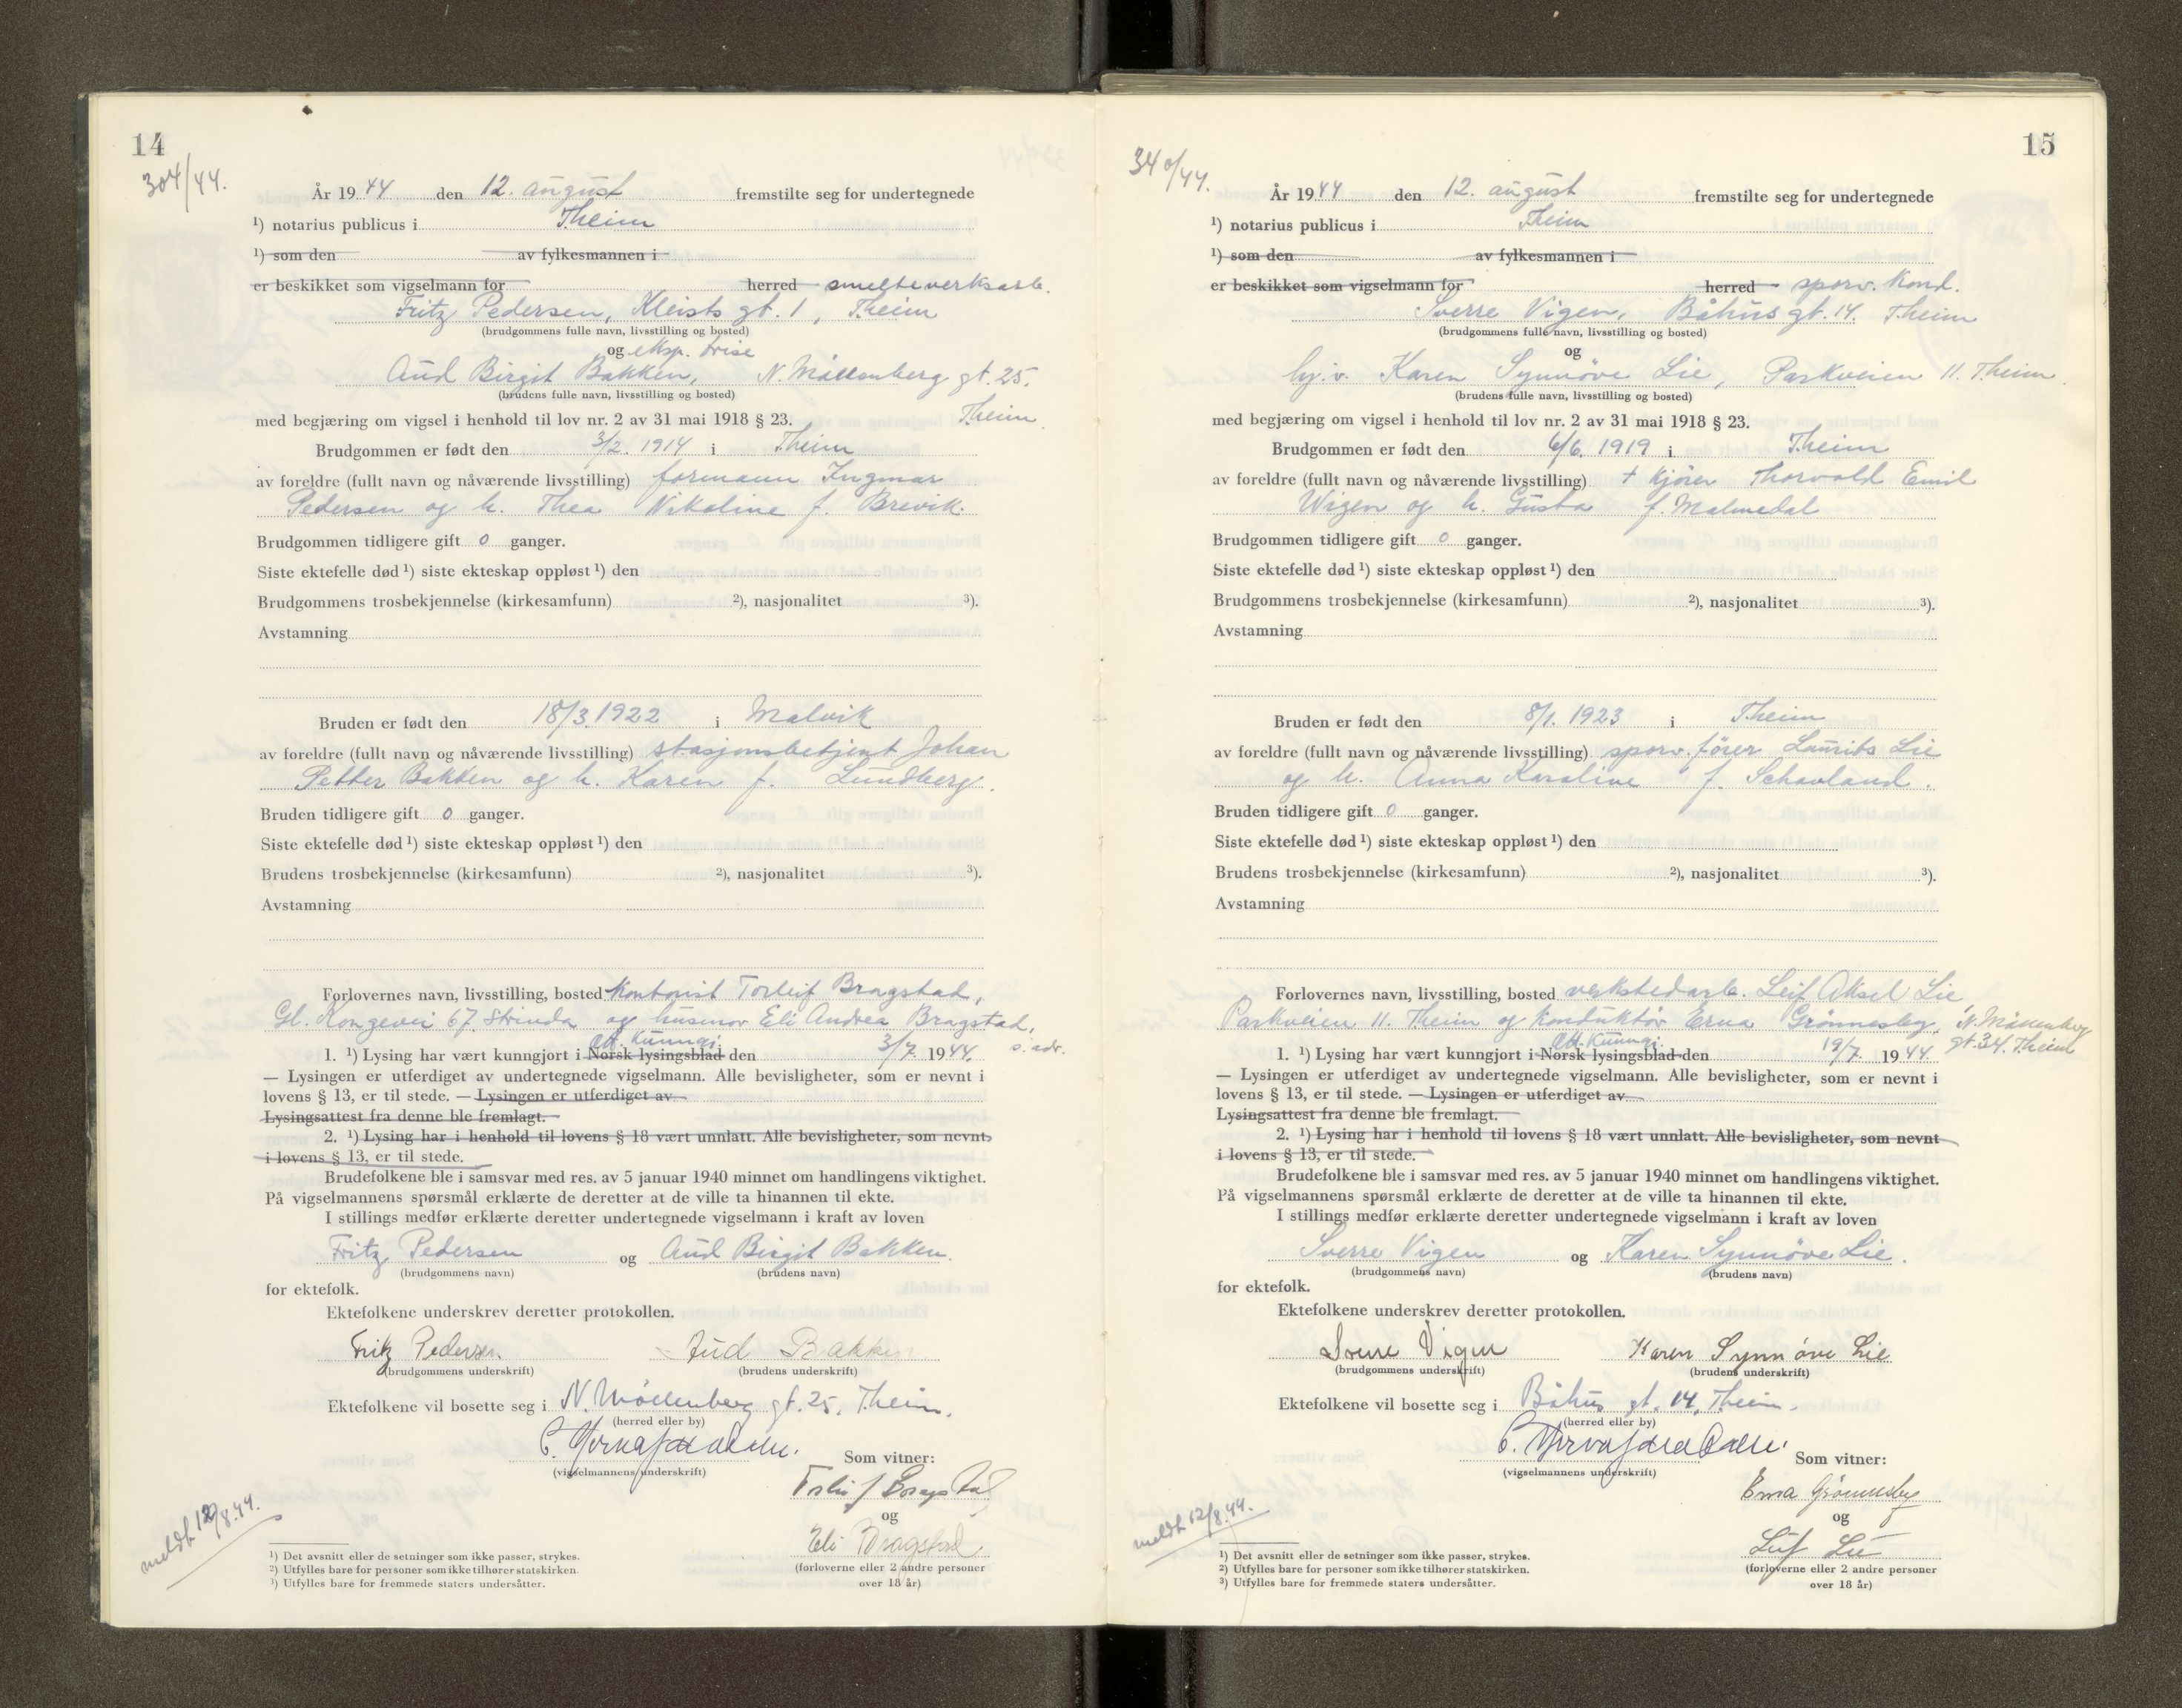 14
304/44.
År 1944 den 12. august fremstilte seg for undertegnede
¹) notarius publicus i Theim
¹) som den av fylkesmannen i
er beskikket som vigselmann for herred smelteverksarb.
Fritz Pedersen, Kleists gt. 1, Theim
(brudgommens fulle navn, livsstilling og bosted)
og eksp. trise
Aud Birgit Bakken, N. Möllenberg gt. 25.
(brudens fulle navn, livsstilling og bosted)
med begjæring om vigsel i henhold til lov nr. 2 av 31 mai 1918 § 23. Theim.
Brudgommen er født den 3/2. 1914 i Theim
av foreldre (fullt navn og nåværende livsstilling) formann Ingmar
Pedersen og h. Thea Nikoline f. Brevik.
Brudgommen tidligere gift 0 ganger.
Siste ektefelle død ¹) siste ekteskap oppløst ¹) den
Brudgommens trosbekjennelse (kirkesamfunn) ²), nasjonalitet ³).
Avstamning
Bruden er født den 18/3 1922 i Malvik
av foreldre (fullt navn og nåværende livsstilling) stasjonsbetjent Johan
Petter Bakken og h. Karen f. Lundberg.
Bruden tidligere gift 0 ganger.
Siste ektefelle død ¹) siste ekteskap oppløst ¹) den
Brudens trosbekjennelse (kirkesamfunn) ²), nasjonalitet ³).
Avstamning
Forlovernes navn, livsstilling, bosted kontorist Torleif Bragstad,
Gl. Kongevei 67. Strinda og husmor Eli Andrea Bragstad,
s. adr.
off. kunngj.
1. ¹) Lysing har vært kunngjort i Norsk lysingsblad den 3/7. 1944.
— Lysingen er utferdiget av undertegnede vigselmann. Alle bevisligheter, som er nevnt i
lovens § 13, er til stede. — Lysingen er utferdiget av
Lysingsattest fra denne ble fremlagt.
2. ¹) Lysing har i henhold til lovens § 18 vært unnlatt. Alle bevisligheter, som nevnt
i lovens § 13, er til stede.
Brudefolkene ble i samsvar med res. av 5 januar 1940 minnet om handlingens viktighet.
På vigselmannens spørsmål erklærte de deretter at de ville ta hinannen til ekte.
I stillings medfør erklærte deretter undertegnede vigselmann i kraft av loven
Fritz Pedersen og Aud Birgit Bakken.
(brudgommens navn) (brudens navn)
for ektefolk.
Ektefolkene underskrev deretter protokollen.
Fritz Pedersen Aud Bakken
(brudgommens underskrift) (brudens underskrift)
Ektefolkene vil bosette seg i N. Möllenberg gt. 25, Theim.
(herred eller by)
(vigselmannens underskrift)
Som vitner:
Torleif Bragstad
og
Eli Bragstad
(forloverne eller 2 andre personer
over 18 år)
meldt 12/8.44.
¹) Det avsnitt eller de setninger som ikke passer, strykes.
²) Utfylles bare for personer som ikke tilhører statskirken.
³) Utfylles bare for fremmede staters undersåtter.
15
340/44.
År 1944 den 12. august fremstilte seg for undertegnede
¹) notarius publicus i Theim
¹) som den av fylkesmannen i
er beskikket som vigselmann for herred sporv. kond.
Sverre Vigen, Båhus gt. 14. Theim
(brudgommens fulle navn, livsstilling og bosted)
og
hj. v. Karen Synnöve Lie, Parkveien 11. Theim
(brudens fulle navn, livsstilling og bosted)
med begjæring om vigsel i henhold til lov nr. 2 av 31 mai 1918 § 23.
Brudgommen er født den 6/6. 1919 i Theim
av foreldre (fullt navn og nåværende livsstilling) + kjörer Thorvald Emil
Wigen og h. Gusta f. Malmedal
Brudgommen tidligere gift 0 ganger.
Siste ektefelle død ¹) siste ekteskap oppløst ¹) den
Brudgommens trosbekjennelse (kirkesamfunn) ²), nasjonalitet ³).
Avstamning
Bruden er født den 8/1. 1923 i Theim
av foreldre (fullt navn og nåværende livsstilling) sporv. förer Laurits Lie
og h. Anna Karoline f. Schavland.
Bruden tidligere gift 0 ganger.
Siste ektefelle død ¹) siste ekteskap oppløst ¹) den
Brudens trosbekjennelse (kirkesamfunn) ²), nasjonalitet ³).
Avstamning
Forlovernes navn, livsstilling, bosted verkstedarb. Leif Aksel Lie,
Parkveien 11. Theim og konduktör Erna Grönnesby, N. Möllenberg
gt. 34. Theim
off. kunngj.
1. ¹) Lysing har vært kunngjort i Norsk lysingsblad den 19/7. 1944
— Lysingen er utferdiget av undertegnede vigselmann. Alle bevisligheter, som er nevnt i
lovens § 13, er til stede. — Lysingen er utferdiget av
Lysingsattest fra denne ble fremlagt.
2. ¹) Lysing har i henhold til lovens § 18 vært unnlatt. Alle bevisligheter, som nevnt
i lovens § 13, er til stede.
Brudefolkene ble i samsvar med res. av 5 januar 1940 minnet om handlingens viktighet.
På vigselmannens spørsmål erklærte de deretter at de ville ta hinannen til ekte.
I stillings medfør erklærte deretter undertegnede vigselmann i kraft av loven
Sverre Vigen og Karen Synnöve Lie.
(brudgommens navn) (brudens navn)
for ektefolk.
Ektefolkene underskrev deretter protokollen.
Sverre Vigen Karen Synnöve Lie
(brudgommens underskrift) (brudens underskrift)
Ektefolkene vil bosette seg i Båhus gt. 14, Theim.
(herred eller by)
(vigselmannens underskrift)
Som vitner:
Erna Grönnesby
og
Leif Lie
(forloverne eller 2 andre personer
over 18 år)
meldt 12/8.44.
¹) Det avsnitt eller de setninger som ikke passer, strykes.
²) Utfylles bare for personer som ikke tilhører statskirken.
³) Utfylles bare for fremmede staters undersåtter.